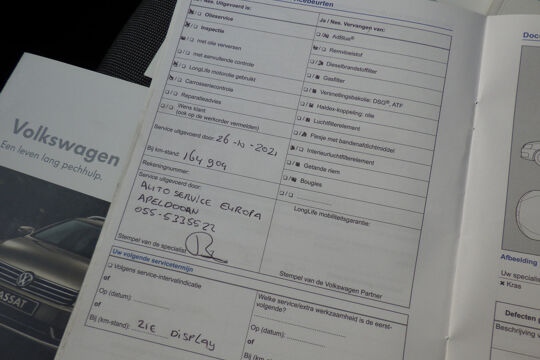 Volkswagen
Een leven lang pechhulp.
Nee. Uitgevoerd is:
Olieservice
Inspectie
met olie verversen
met aanvullende controle
LongLife motorolie gebruikt
Carrosseriecontrole
Reparatieadvies
Wens klant
(ook op de werkorder vermelden)
Service uitgevoerd door:
Bij km-stand: 164 909
Rekeningnummer:
Service uitgevoerd door:
AUTO SERVICE EUROPA
APELDOORN
055-5335522
Stempel van de specialist
Uw volgende servicetermijn
Volgens service-intervalindicatie
of
Op (datum):
of
Bij (km-stand): ZIE DISPLAY
Ja / Nee. Vervangen van:
AdBlue®
Remvloeistof
Dieselbrandstoffilter
Gasfilter
Versnellingsbakolie: DSG®, ATF
Haldex-koppeling: olie
Luchtfilterelement
Flesje met bandenafdichtmiddel
Interieurluchtfilterelement
Getande riem
Bougies
LongLife mobiliteitsgarantie:
Stempel van de Volkswagen Partner
Welke service/extra werkzaamheid is de eerst-
volgende?
Op (datum):
of
Bij (km-stand):
Afbeelding
Uw specialis
× Kras
Defecten
Beschrijving